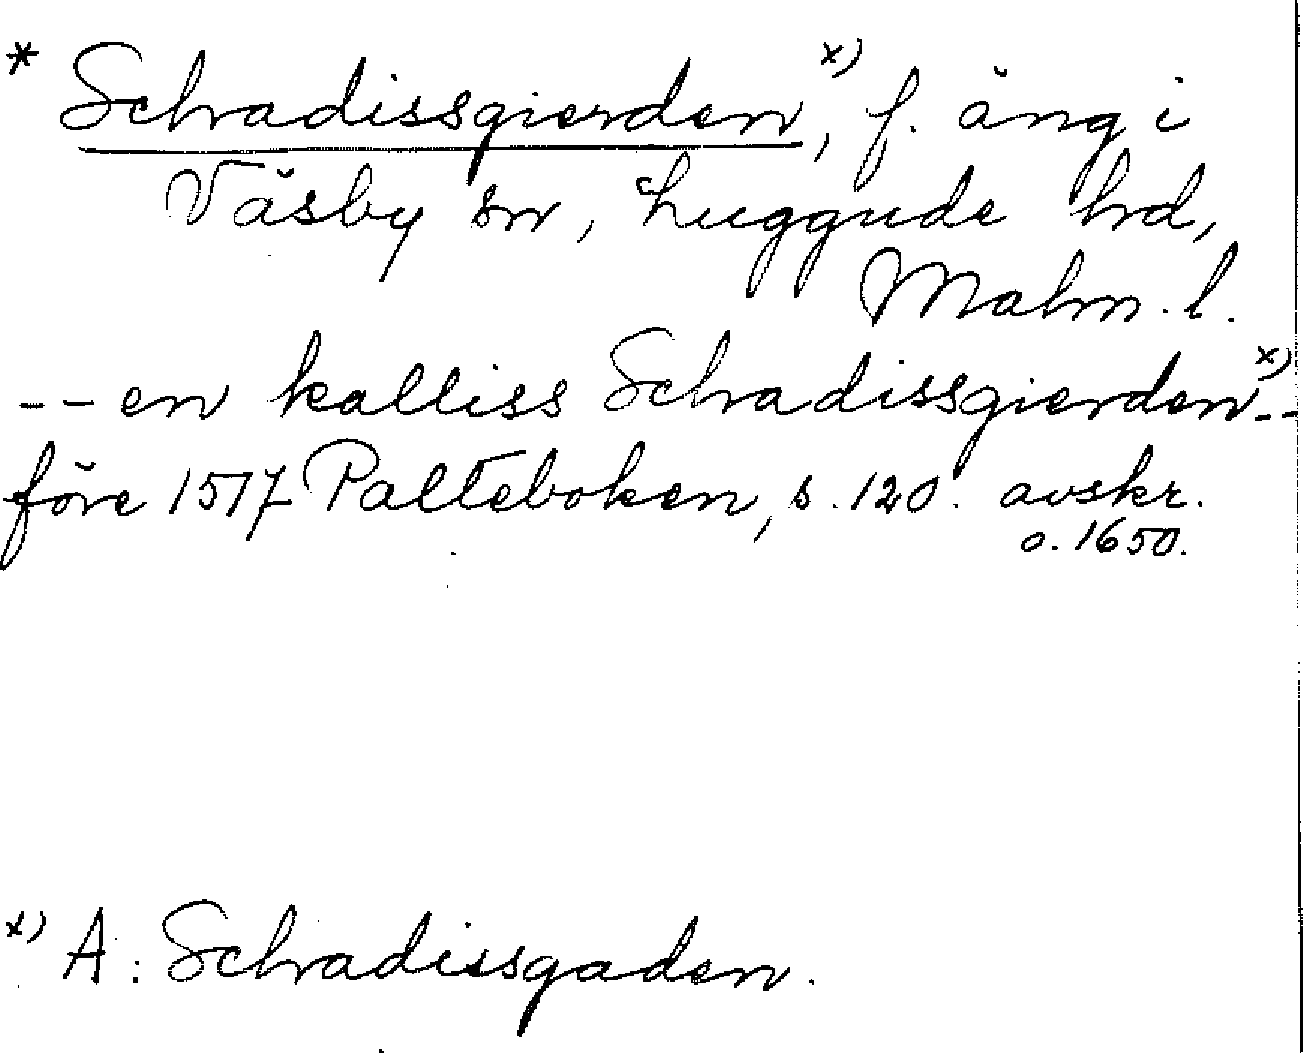 * Schradissgierden x), f. äng i
Väsby sn, Luggude hd,
Malm. l.
-- en kalliss Schradissgierden x) --
före 1517 Palteboken, s. 120. avskr.
o. 1650.
x) A: Schradissgaden.